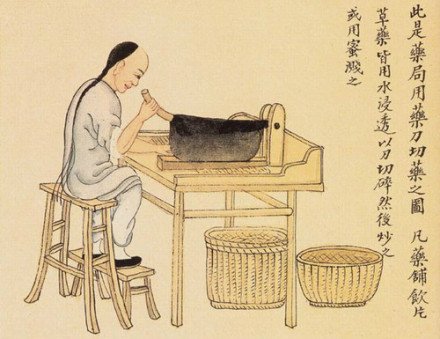 此是藥局用藥刀切藥之圖 凡藥鋪飲片
草藥皆用水浸透以刀切碎然後炒之
或用蜜濺之